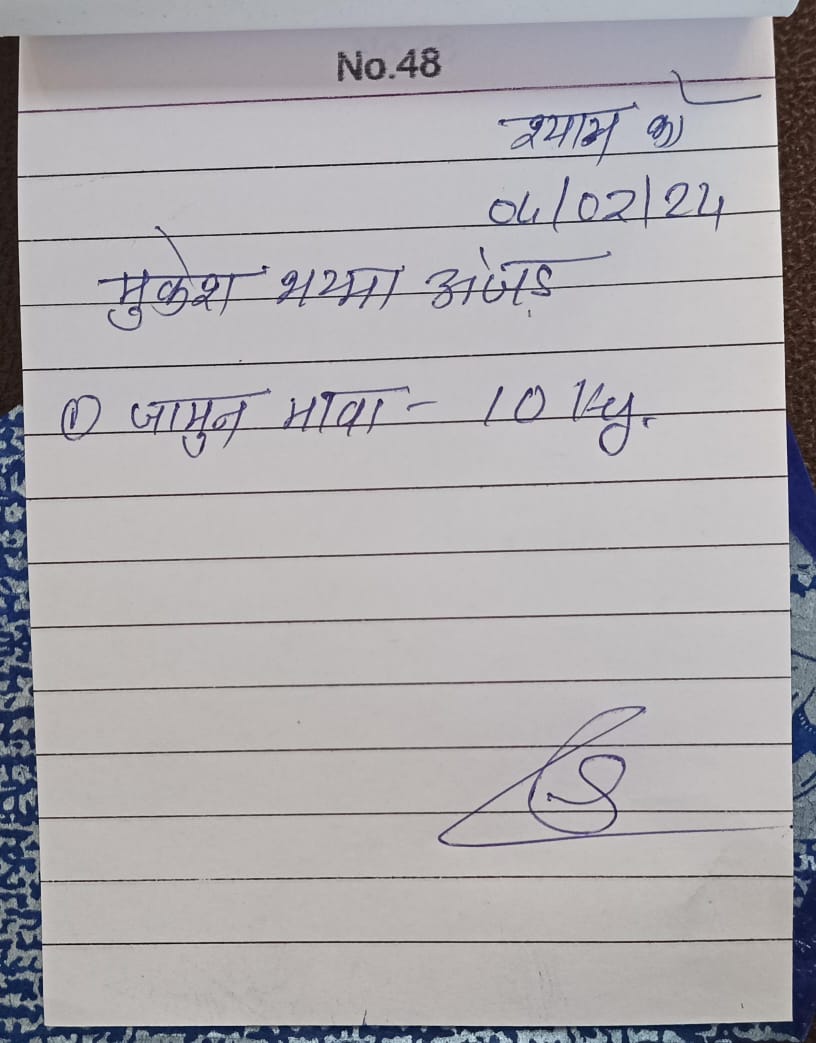 No.48
श्याम को
04/02/24
मुकेश भय्या अंजड़
① जामुन मावा - 10 Kg.